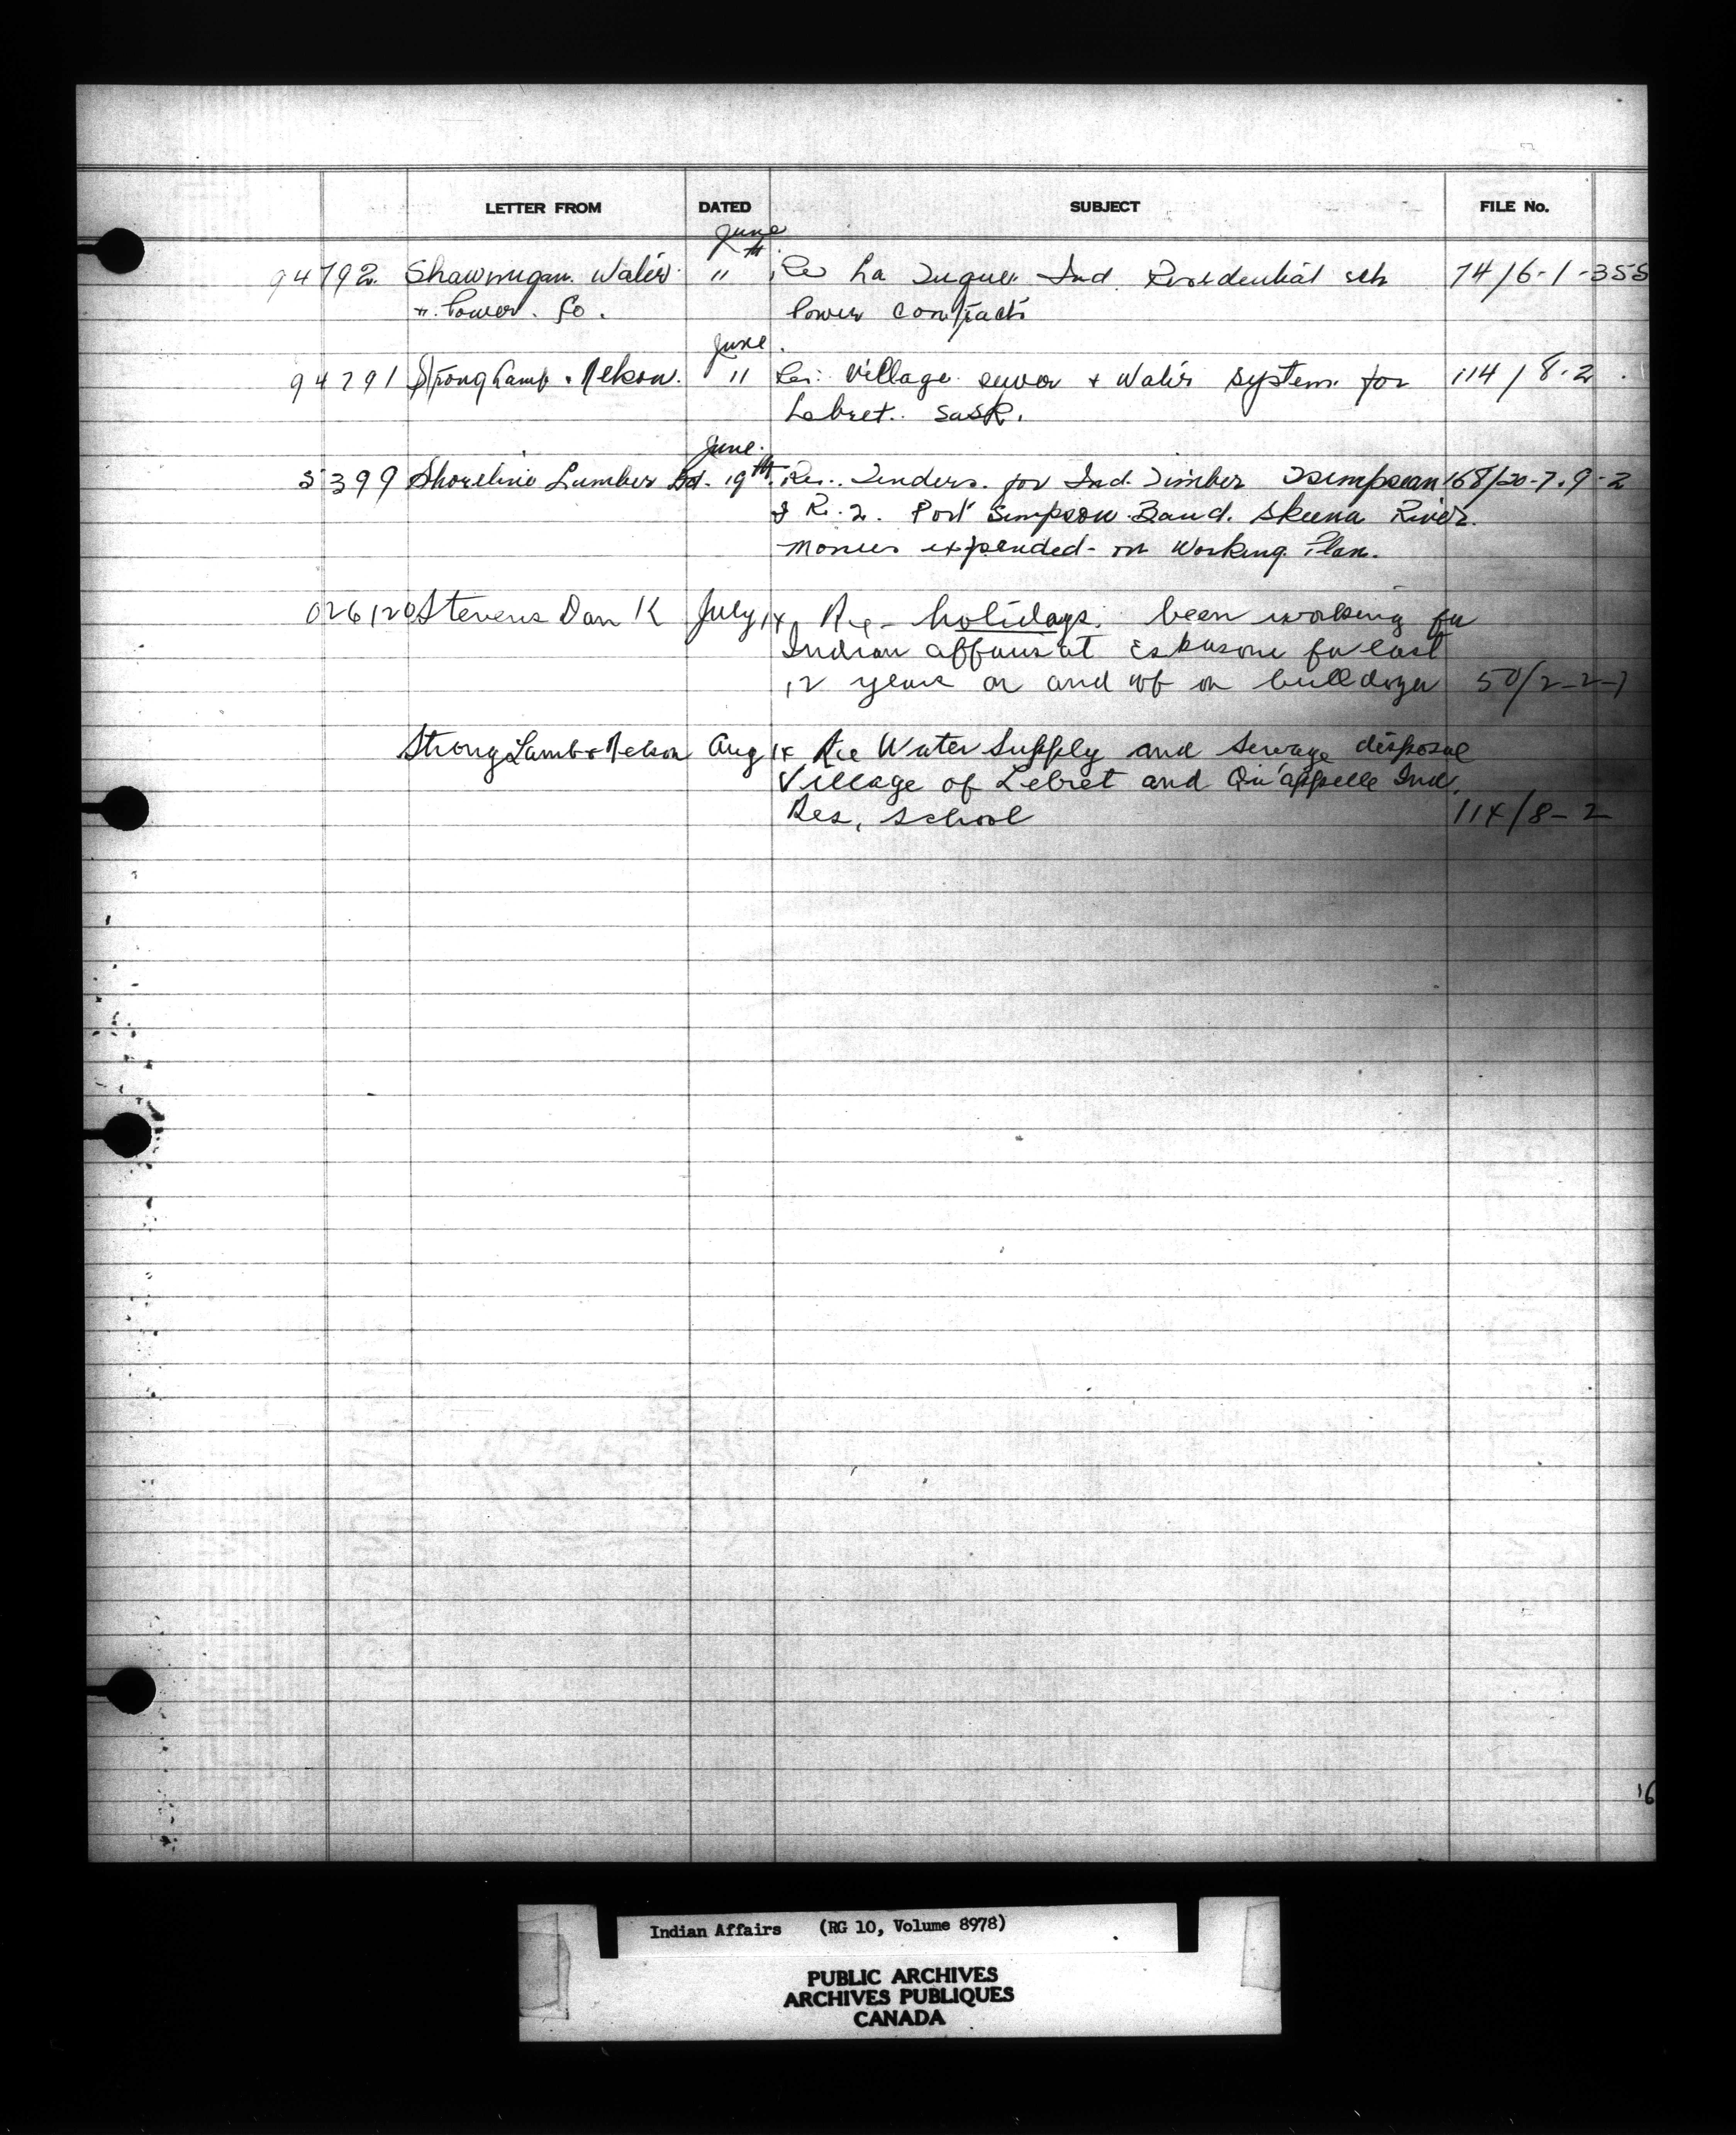 LETTER FROM DATED SUBJECT FILE No.
June
94792 Shawinigan Water 11th Re La Tuque Ind. Residential sch 74/6-1-355
+ Power Co. Power Contracts
June
94791 Strong Lamb + Nelson. 11 Re: Village sewer + Water System for 114/8-2
Lebret. Sask.
June
5399 Shoreline Lumber Ltd. 19th Re: Tenders for Ind. Timber Tsimpsean 168/20-7-9-2
I R. 2. Port Simpson Band. Skeena River.
Monies expended on Working Plan.
026120 Stevens Dan K July 14 Re - holidays. been working for
Indian affairs at Eskasoni for last
12 years on and off on bulldozer 50/2-2-7
Strong Lamb + Nelson Aug 14 Re Water Supply and Sewage disposal
Village of Lebret and Qu'appelle Ind.
Res. School 114/8-2
16
Indian Affairs (RG 10, Volume 8978)
PUBLIC ARCHIVES
ARCHIVES PUBLIQUES
CANADA